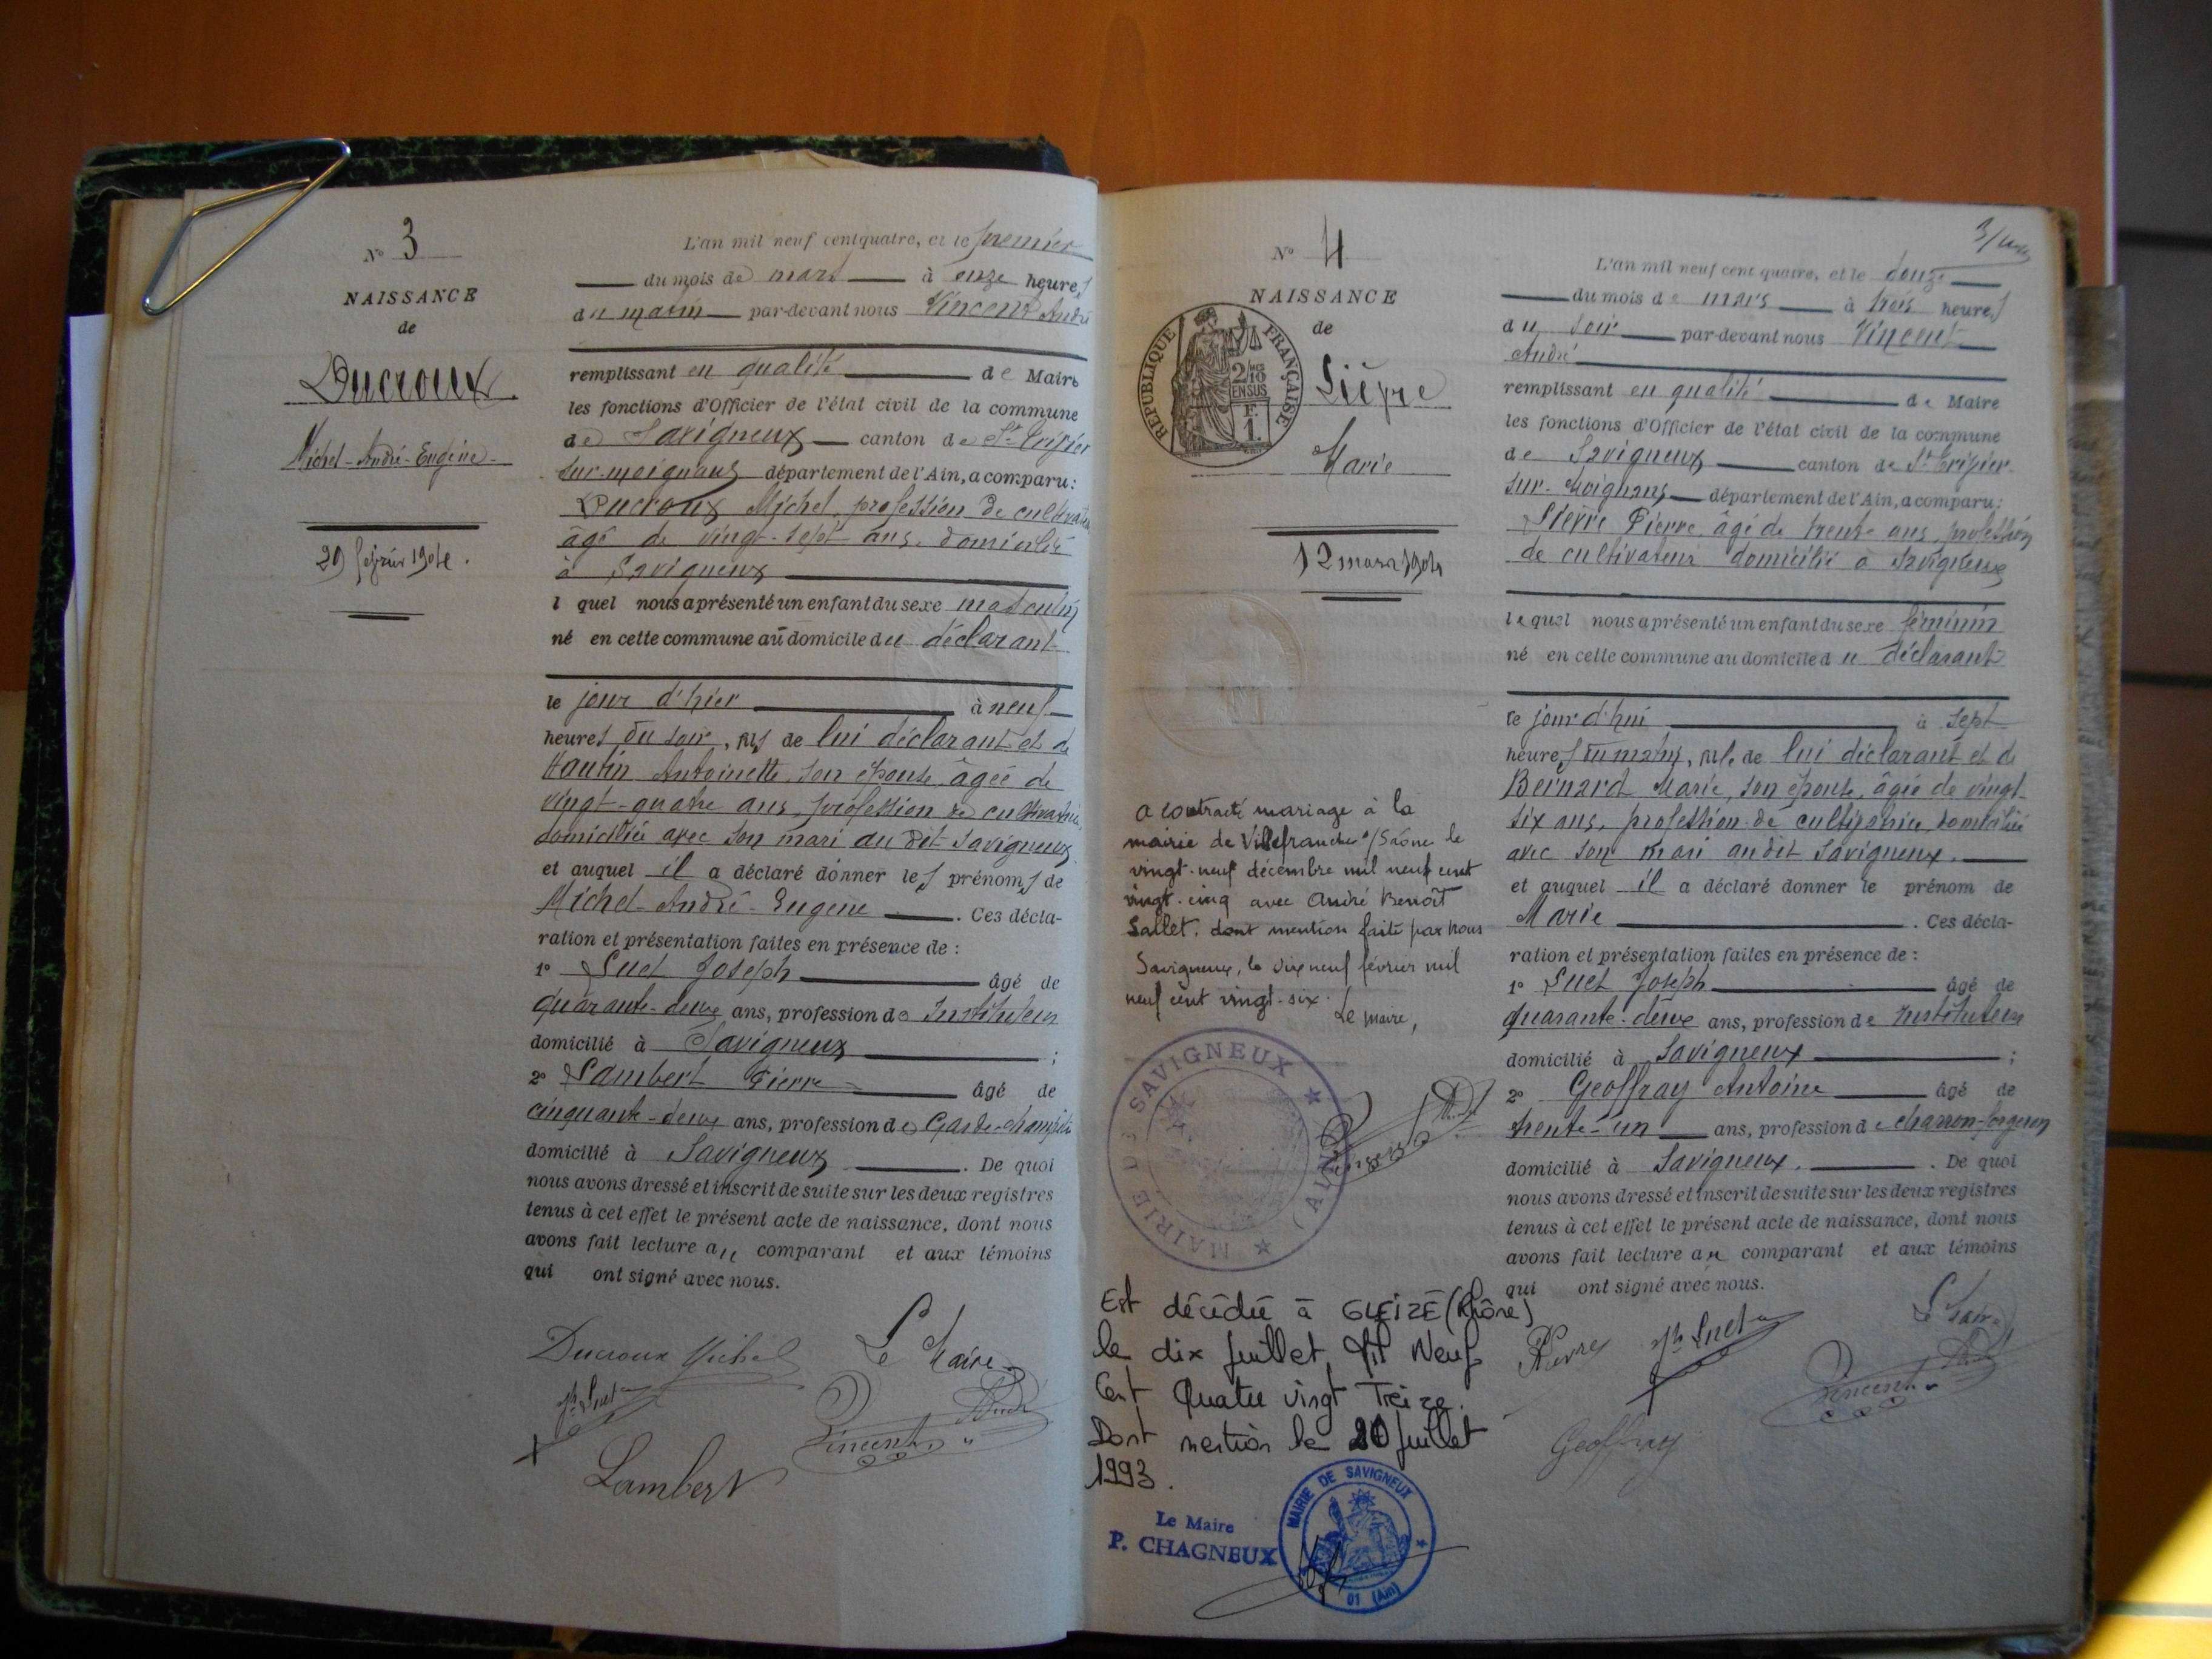 N° 3
NAISSANCE
de
Ducroux
Michel-André-Eugène
29 février 1904.
L'an mil neuf cent quatre, et le premier
du mois de mars à onze heures
du matin par-devant nous Vincent André
remplissant en qualité de Maire
les fonctions d'Officier de l'état civil de la commune
de Savigneux canton de St Trivier
sur-moignans département de l'Ain, a comparu:
Ducroux Michel, profession de cultivateur
âgé de vingt-sept ans, domicilié
à Savigneux
l quel nous a présenté un enfant du sexe masculin
né en cette commune au domicile du déclarant
le jour d'hier à neuf
heures du soir, fils de lui déclarant et de
Antoinette, son épouse, âgée de
vingt-quatre ans, profession de cultivatrice,
domiciliée avec son mari au dit Savigneux
et auquel il a déclaré donner les prénoms de
Michel-André-Eugène. Ces décla-
ration et présentation faites en présence de :
1° Suet Joseph âgé de
quarante-deux ans, profession de Instituteur
domicilié à Savigneux ;
2° Lambert Pierre âgé de
cinquante-deux ans, profession de Garde-champêtre
domicilié à Savigneux. De quoi
nous avons dressé et inscrit de suite sur les deux registres
tenus à cet effet le présent acte de naissance, dont nous
avons fait lecture au comparant et aux témoins
qui ont signé avec nous.
Ducroux Michel Le Maire
Jh Suet Vincent André
Lambert
3/
N° 4
NAISSANCE
de
RÉPUBLIQUE FRANÇAISE
2/10 EN SUS
F. 1.
Lièvre
Marie
12 mars 1904
a contracté mariage à la
mairie de Villefranche s/Saône le
vingt-neuf décembre mil neuf cent
vingt-cinq avec André Benoît
Sallet. dont mention faite par nous
Savigneux, le dix neuf février mil
neuf cent vingt-six.
Le maire,
MAIRIE DE SAVIGNEUX (AIN)
Est décédée à GLEIZÉ (Rhône)
le dix juillet, Mil Neuf
Cent Quatre vingt Treize.
Dont mention le 20 juillet
1993.
Le Maire
P. CHAGNEUX
MAIRIE DE SAVIGNEUX
01 (Ain)
L'an mil neuf cent quatre, et le douze
du mois de mars à trois heures
du soir par-devant nous Vincent
André
remplissant en qualité de Maire
les fonctions d'Officier de l'état civil de la commune
de Savigneux canton de St Trivier
sur-Moignans département de l'Ain, a comparu:
Lièvre Pierre, âgé de trente ans, profession
de cultivateur domicilié à Savigneux
lequel nous a présenté un enfant du sexe féminin
né en cette commune au domicile du déclarant
ce jour d'hui à sept
heures du matin, fille de lui déclarant et de
Bernard Marie, son épouse, âgée de vingt
six ans, profession de cultivatrice, domiciliée
avec son mari audit Savigneux.
et auquel il a déclaré donner le prénom de
Marie. Ces décla-
ration et présentation faites en présence de :
1° Suet Joseph âgé de
quarante-deux ans, profession de Instituteur
domicilié à Savigneux ;
2° Geoffray Antoine âgé de
trente-un ans, profession de charron-forgeron
domicilié à Savigneux. De quoi
nous avons dressé et inscrit de suite sur les deux registres
tenus à cet effet le présent acte de naissance, dont nous
avons fait lecture au comparant et aux témoins
qui ont signé avec nous.
Le Maire
Jh Suet
Vincent André
Geoffray